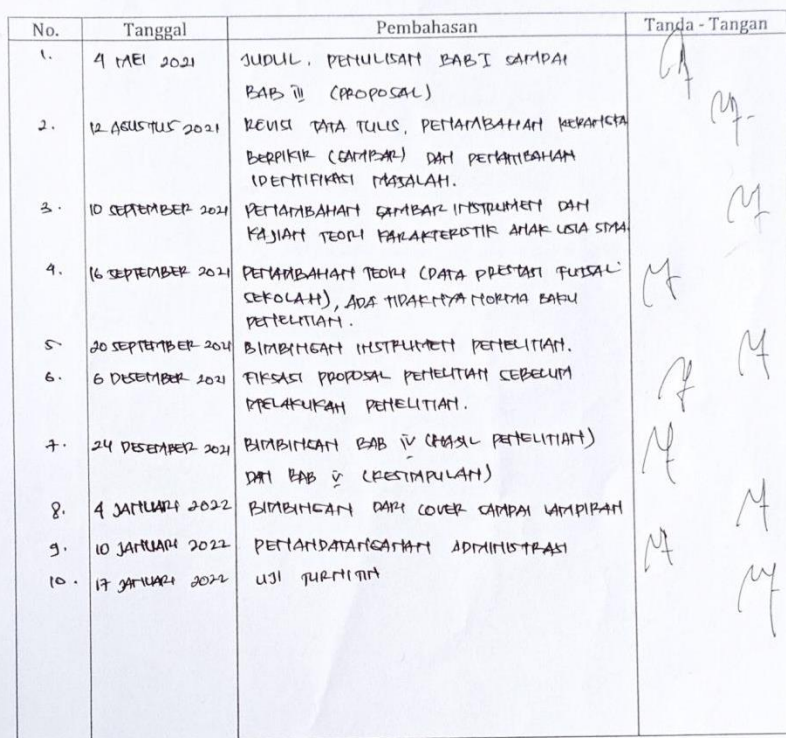 No. Tanggal Pembahasan Tanda - Tangan
1. 4 MEI 2021 JUDUL, PENULISAN BAB I SAMPAI
BAB III (PROPOSAL)
2. 12 AGUSTUS 2021 REVISI TATA TULIS, PENAMBAHAN KERANGKA
BERPIKIR (GAMBAR) DAN PENAMBAHAN
IDENTIFIKASI MASALAH.
3. 10 SEPTEMBER 2021 PENAMBAHAN GAMBAR INSTRUMEN DAN
KAJIAN TEORI KARAKTERISTIK ANAK USIA SMA
4. 16 SEPTEMBER 2021 PENAMBAHAN TEORI (DATA PRESTASI FUTSAL
SEKOLAH), ADA TIDAKNYA NORMA BAKU
PENELITIAN.
5 20 SEPTEMBER 2021 BIMBINGAN INSTRUMEN PENELITIAN.
6. 6 DESEMBER 2021 FIKSASI PROPOSAL PENELITIAN SEBELUM
MELAKUKAN PENELITIAN.
7. 24 DESEMBER 2021 BIMBINGAN BAB IV (HASIL PENELITIAN)
DAN BAB V (KESIMPULAN)
8. 4 JANUARI 2022 BIMBINGAN DARI COVER SAMPAI LAMPIRAN
9. 10 JANUARI 2022 PENANDATANGANAN ADMINISTRASI
10. 17 JANUARI 2022 UJI TURNITIN